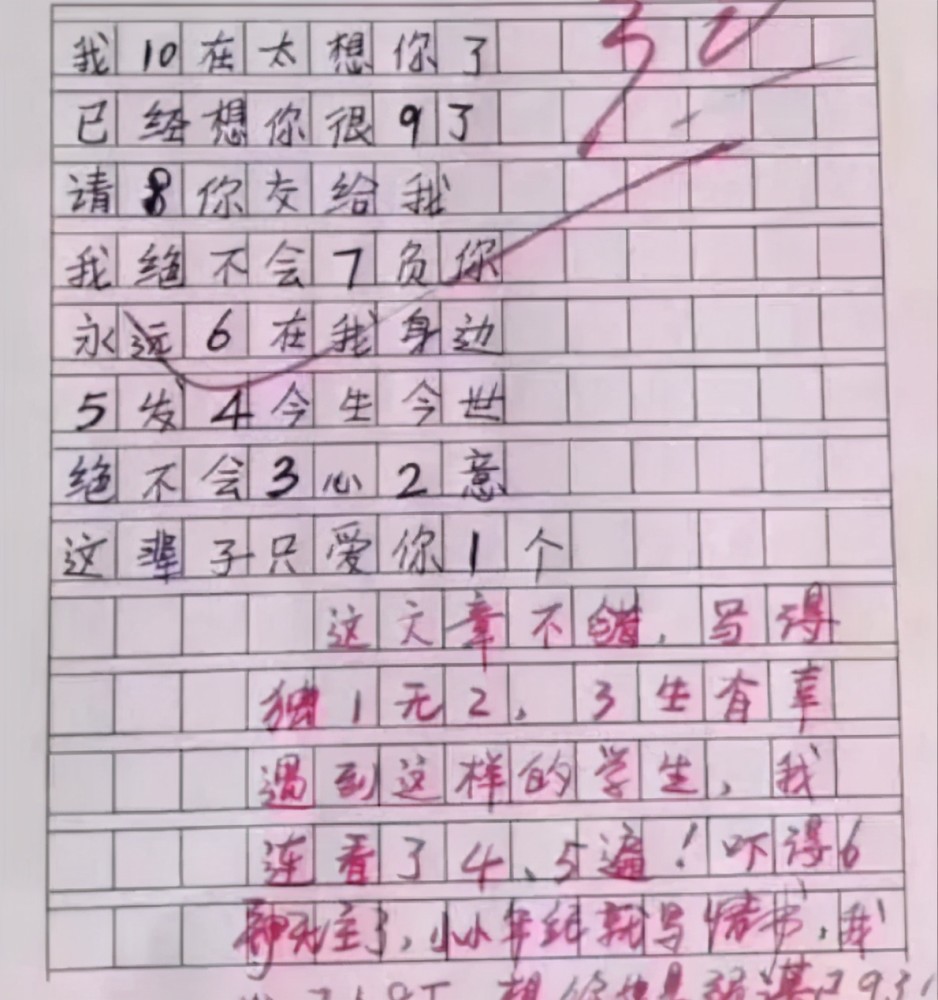 我10在太想你了
已经想你很9了
请8你交给我
我绝不会7负你
永远6在我身边
5发4今生今世
绝不会3心2意
这辈子只爱你1个
这文章不错，写得
独1无2，3生有幸
遇到这样的学生，我
连看了4、5遍！吓得6
神无主了，小小年纪就写情书，我
想你也是